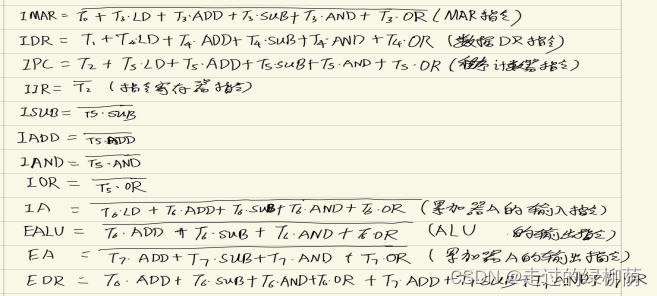 IMAR = T0 + T3·LD + T3·ADD + T3·SUB + T3·AND + T3·OR (MAR指令)
IDR = T1 + T4·LD + T4·ADD + T4·SUB + T4·AND + T4·OR (数据DR指令)
IPC = T2 + T5·LD + T5·ADD + T5·SUB + T5·AND + T5·OR (程序计数器指令)
IIR = T2 (指令寄存器指令)
ISUB = T5·SUB
IADD = T5·ADD
IAND = T5·AND
IOR = T5·OR
IA = T6·LD + T6·ADD + T6·SUB + T6·AND + T6·OR (累加器A的输入指令)
EALU = T6·ADD + T6·SUB + T6·AND + T6·OR (ALU的输出指令)
EA = T7·ADD + T7·SUB + T7·AND + T7·OR (累加器A的输出指令)
EDR = T6·ADD + T6·SUB + T6·AND + T6·OR + T7·ADD + T7·SUB + T7·AND + T7·OR
CSDN @走过的绿柳荫